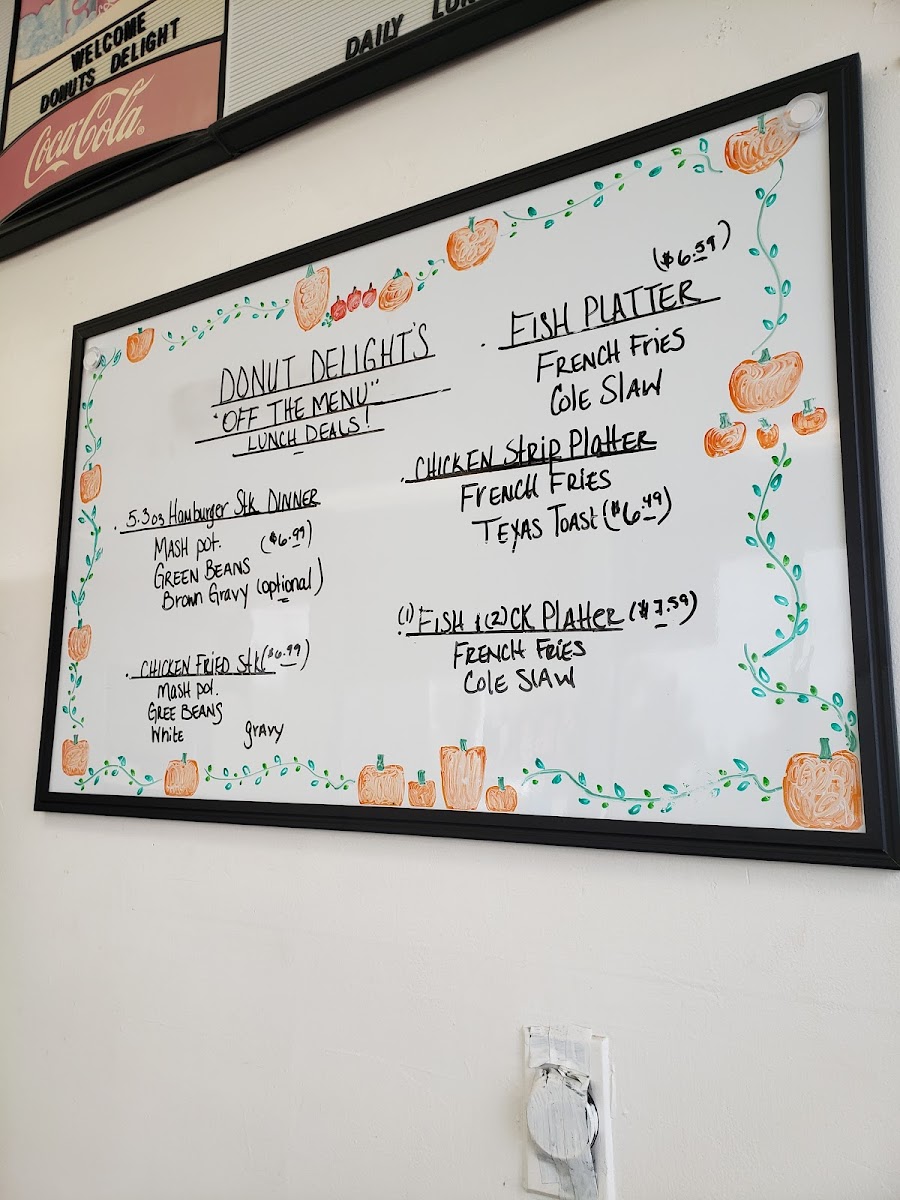 WELCOME
DONUTS DELIGHT
Coca-Cola
DAILY
DONUT DELIGHT'S
"OFF THE MENU"
LUNCH DEALS!
5.3oz Hamburger Stk DINNER
MASH POT. ($6.99)
GREEN BEANS
Brown Gravy (optional)
CHICKEN FRIED Stk ($6.99)
MASH POT.
GREE BEANS
White gravy
($6.59)
FISH PLATTER
FRENCH FRIES
COLE SLAW
CHICKEN Strip Platter
FRENCH FRIES
TEXAS TOAST ($6.49)
(1) FISH & (2) CK PlATTER ($7.59)
FRENCH FRIES
COLE SLAW